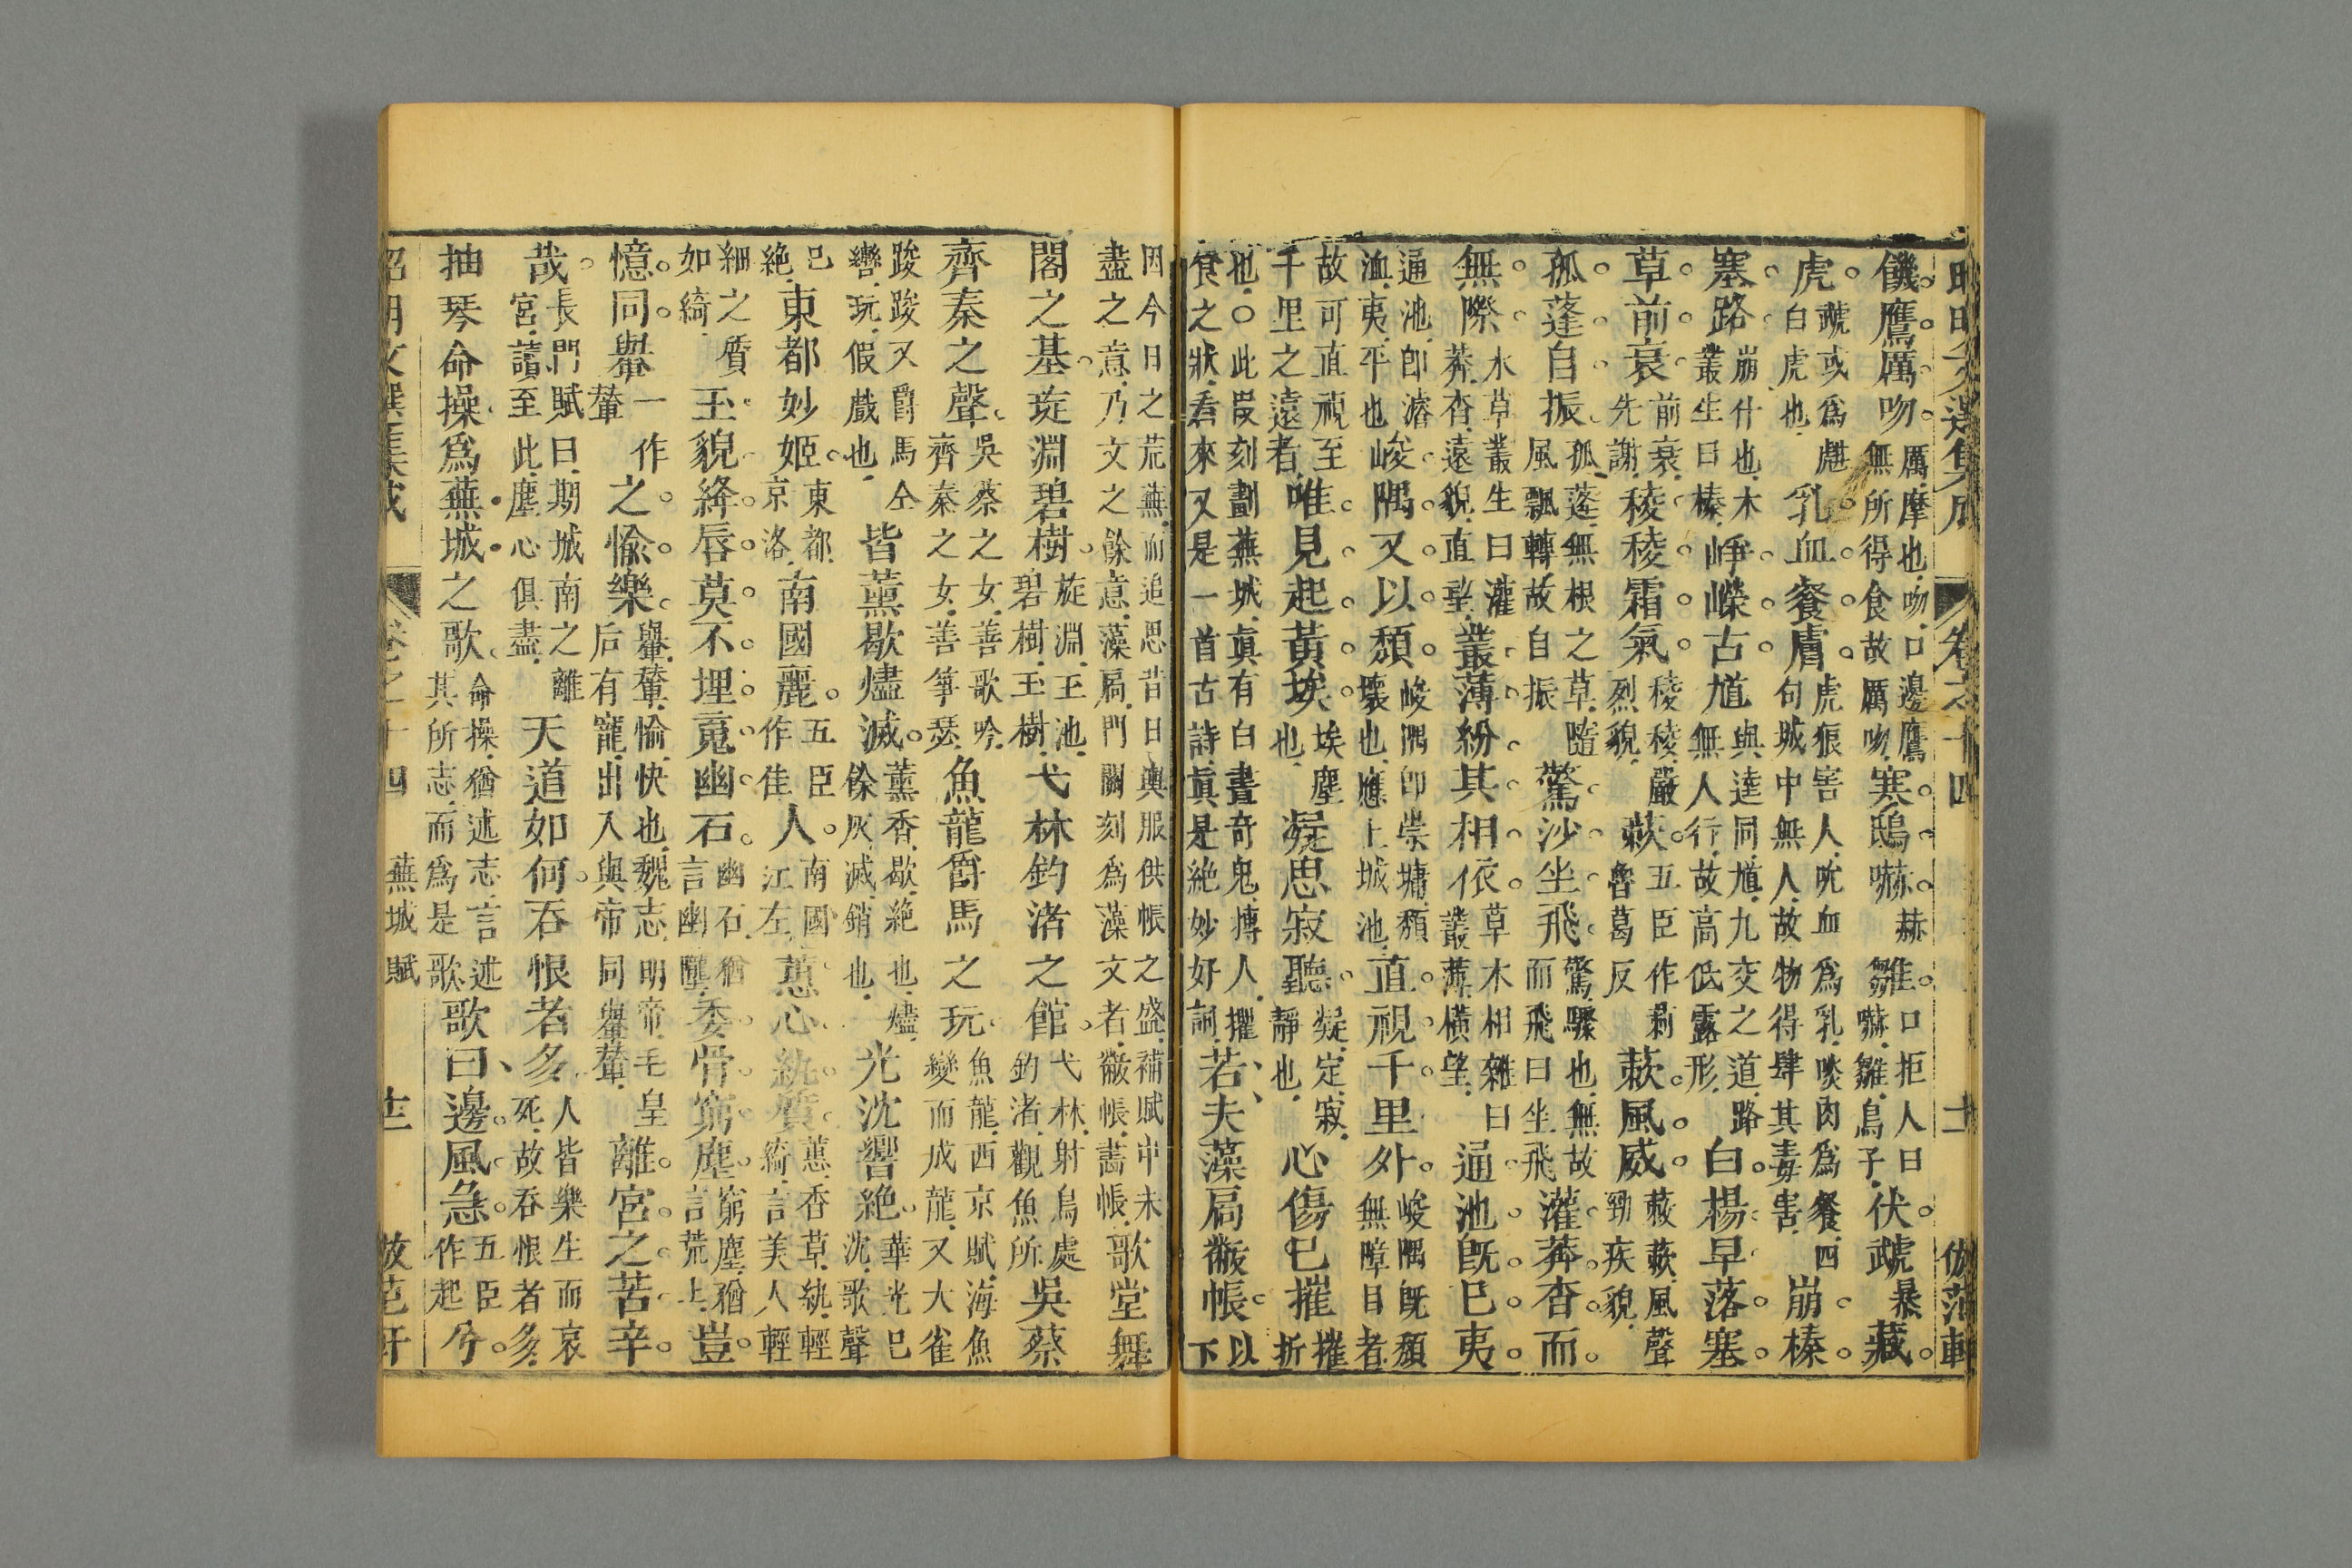 昭明文選集成 卷之十四 十二 倣范軒
饑鷹厲吻厲摩也吻口邊鷹無所得食故厲吻寒鴟嚇赫雛口拒人曰嚇雛鳥子伏虣暴藏
虎虣或爲甝白虎也乳血餐膚虎狼害人吮血爲乳啖肉爲餐四句城中無人故物得肆其毒害崩榛
塞路崩什也木叢生曰榛崢嶸古馗與逵同馗九交之道路無人行故高低露形白楊早落塞
草前衰前衰先謝稜稜霜氣稜稜嚴烈貌蔌五臣作剗魯葛反蔌風威蔌蔌風聲勁疾貌
孤蓬自振孤蓬無根之草隨風飄轉故自振驚沙坐飛驚驟也無故而飛曰坐飛灌莽杳而
無際水草叢生曰灌莽杳遠貌直望叢薄紛其相依草木相雜曰叢薄橫望通池旣已夷
通池卽濬洫夷平也峻隅又以頹峻隅卽崇墉頹壞也應上城池直視千里外峻隅旣頹無障目者
故可直視至千里之遠者唯見起黃埃埃塵也凝思寂聽凝定寂靜也心傷已摧摧折
也○此叚刻劃蕪城眞有白晝奇鬼搏人攫食之狀看來又是一首古詩眞是絕妙好詞若夫藻扃黼帳以下
因今日之荒蕪而追思昔日輿服供帳之盛補賦中未盡之意乃文之餘意藻扃門關刻爲藻文者黼帳畫帳歌堂舞
閣之基琁淵碧樹旋淵玉池碧樹玉樹弋林釣渚之館弋林射鳥處釣渚觀魚所吳蔡
齊秦之聲吳蔡之女善歌吟齊秦之女善箏瑟魚龍爵馬之玩魚龍西京賦海魚變而成龍又大雀
踆踆又爵馬仝轡玩假戲也皆薰歇燼滅薰香歇絕也燼餘灰滅銷也光沈響絕華光已沈歌聲
已絕東都妙姬東都京洛南國麗五臣作佳人南國江左蕙心紈質蕙香草紈輕綺言美人輕
細之質如綺玉貌絳唇莫不埋䰟幽石幽石猶言幽壟委骨窮塵窮塵猶言荒土豈
憶同轝一作輦之愉樂轝輦愉快也魏志明帝毛皇后有寵出入與帝同轝輦離宮之苦辛
哉長門賦曰期城南之離宮讀至此塵心俱盡天道如何吞恨者多人皆樂生而哀死故吞恨者多
抽琴命操爲蕪城之歌命操猶述志言述其所志而爲是歌歌曰邊風急五臣作起兮
昭明文選集成 卷之十四 蕪城賦 十二 倣范軒